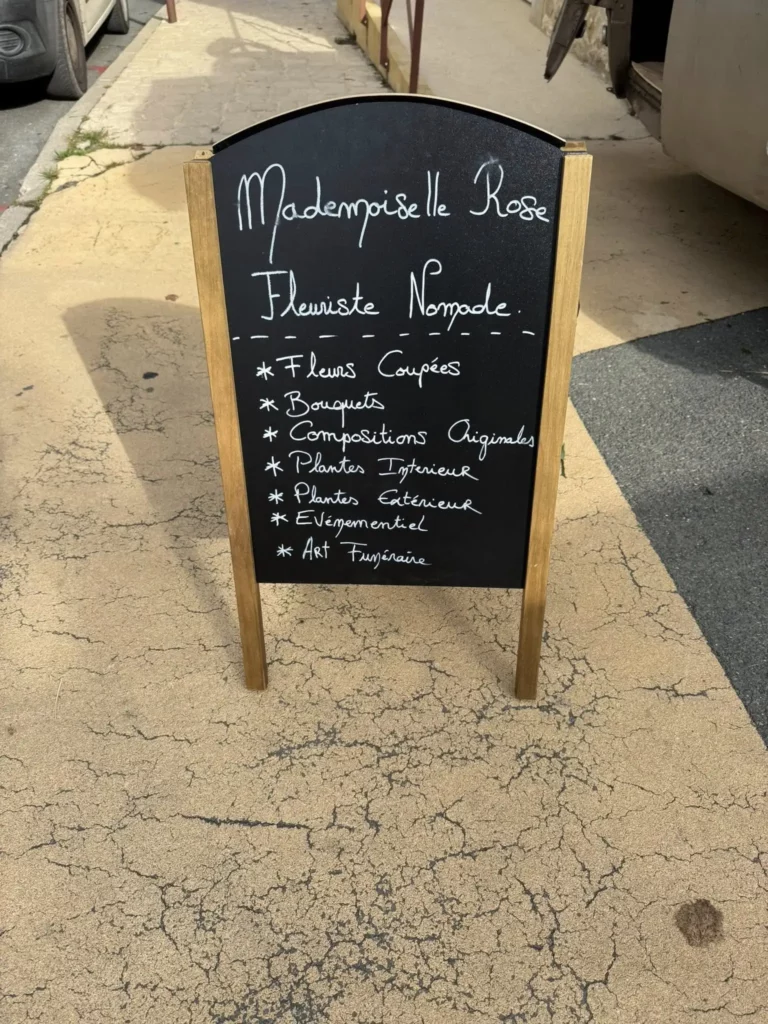 Mademoiselle Rose
Fleuriste Nomade.
* Fleurs Coupées
* Bouquets
* Compositions Originales
* Plantes Interieur
* Plantes Extérieur
* Evénementiel
* Art Funéraire